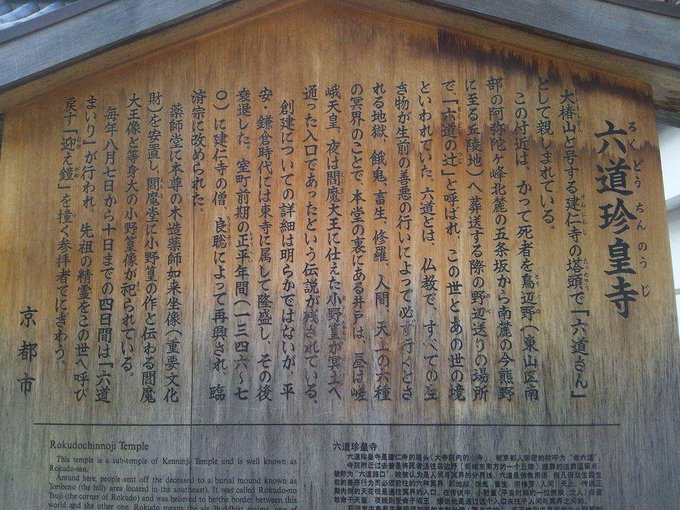 六道珍皇寺
ろくどうちんのうじ
大椿山と号する建仁寺の塔頭で「六道さん」
として親しまれている。
この付近は、かつて死者を鳥辺野(東山区南
部の阿弥陀ヶ峰北麓の五条坂から南麓の今熊野
に至る丘陵地)へ葬送する際の野辺送りの場所
で「六道の辻」と呼ばれ、この世とあの世の境
といわれていた。六道とは、仏教で、すべての生
き物が生前の善悪の行いによって必ず行くとさ
れる地獄、餓鬼、畜生、修羅、人間、天上の六種
の冥界のことで、本堂の裏にある井戸は、昼は嵯
峨天皇、夜は閻魔大王に仕えた小野篁が冥土へ
通った入口であったという伝説が残されている。
創建についての詳細は明らかではないが、平
安・鎌倉時代には東寺に属して隆盛し、その後
衰退した。室町前期の正平年間(一三四六〜七
〇)に建仁寺の僧 良聡によって再興され、臨
済宗に改められた。
薬師堂に本尊の木造薬師如来坐像(重要文化
財)を安置し、閻魔堂に小野篁の作と伝わる閻魔
大王像と等身大の小野篁像が祀られている。
毎年八月七日から十日までの四日間は「六道
まいり」が行われ、先祖の精霊をこの世へ呼び
戻す「迎え鐘」を撞く参拝者でにぎわう。
京都市
Rokudochinnoji Temple
This temple is a sub-temple of Kenninji Temple and is well known as
Rokudo-san.
Around here, people sent off the deceased to a burial mound known as
Toribeno (the hilly area located in the southeast). It was called Rokudo-no
Tsuji (the corner of Rokudo) and was believed to be the border between this
world and the other one. Rokudo means the six
六道珍皇寺